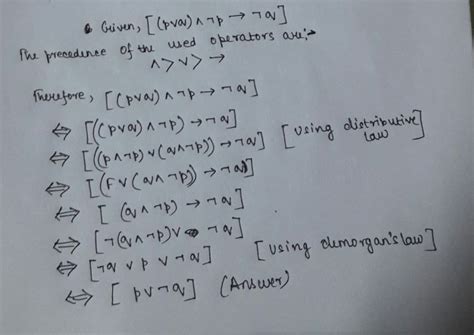 Given, [(p∨q) ∧ ¬p → ¬q]
The precedence of the used operators are:-
∧ > ∨ > →
Therefore, [(p∨q) ∧ ¬p → ¬q]
⇔ [((p∨q) ∧ ¬p) → ¬q]
⇔ [((p∧¬p) ∨ (q∧¬p)) → ¬q] [using distributive law]
⇔ [(F ∨ (q∧¬p)) → ¬q]
⇔ [ (q∧¬p) → ¬q]
⇔ [¬(q∧¬p) ∨ ¬q]
⇔ [¬q ∨ p ∨ ¬q] [using demorgan's law]
⇔ [ p∨¬q] (Answer)